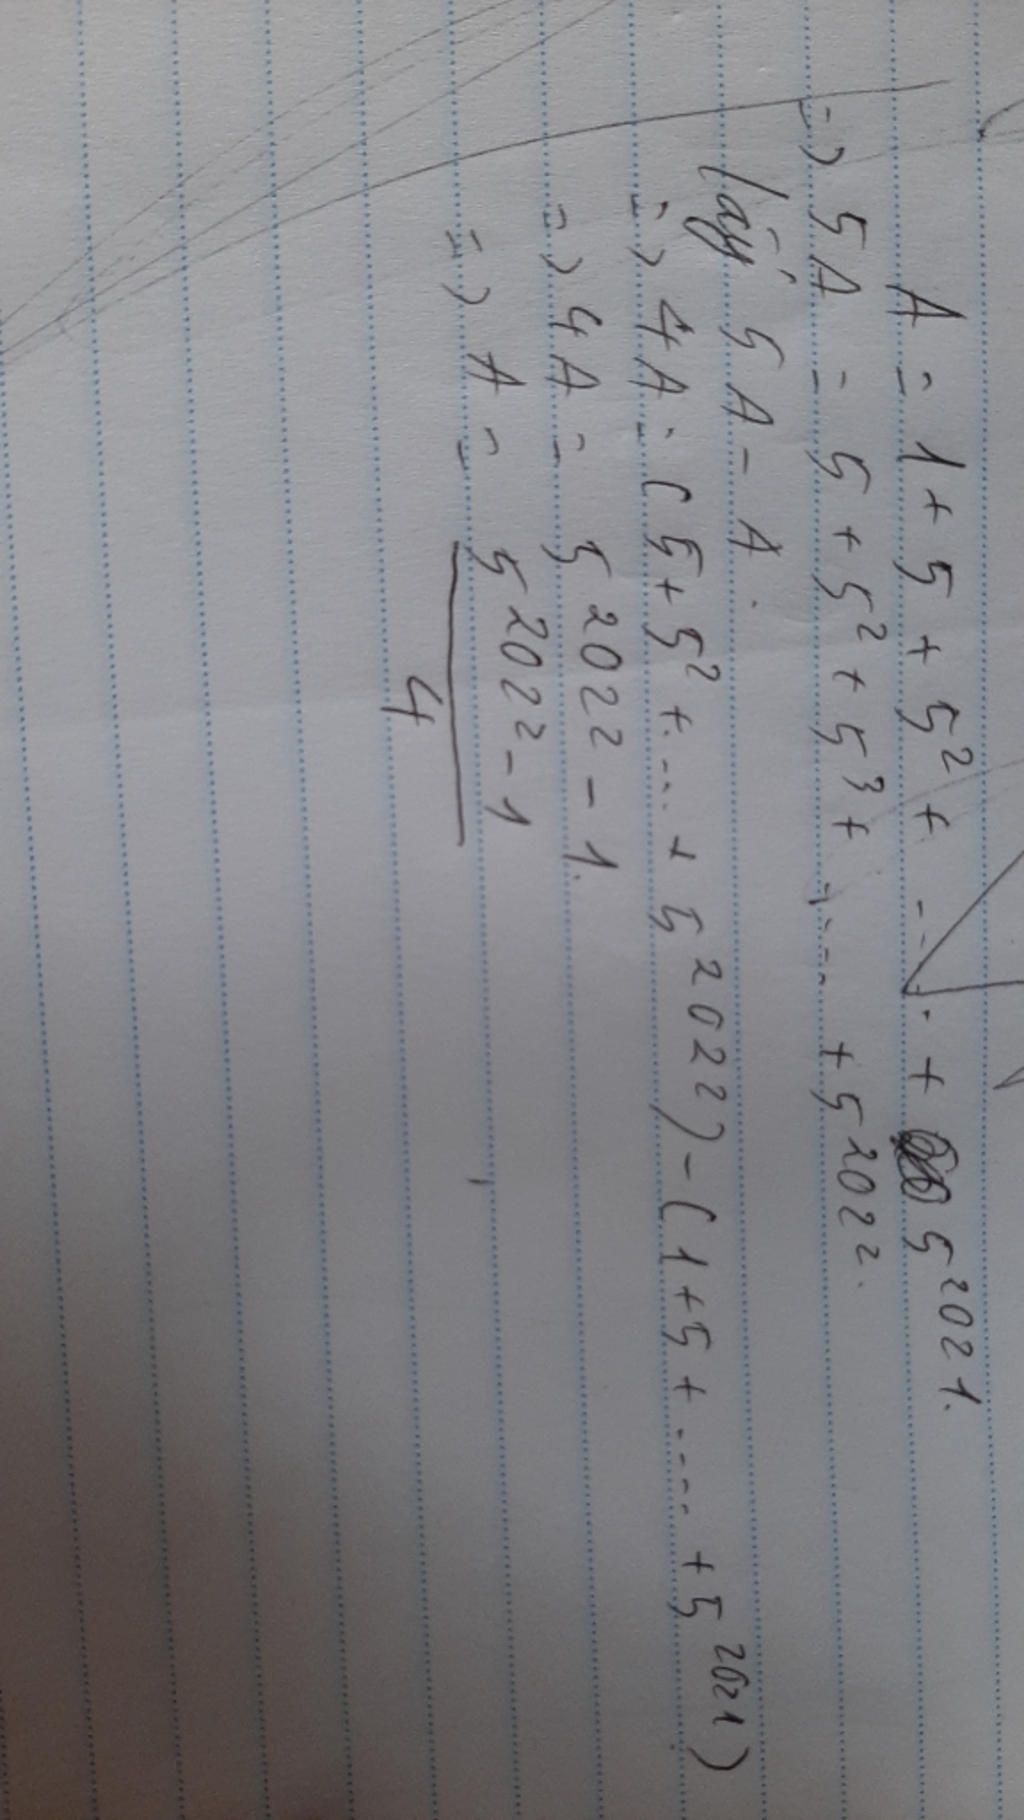 A = 1 + 5 + 5² + ... + 5²⁰²¹.
=> 5A = 5 + 5² + 5³ + ..... + 5²⁰²².
lấy 5A - A.
=> 4A = (5 + 5² + ... + 5²⁰²²) - (1 + 5 + .... + 5²⁰²¹)
=> 4A = 5²⁰²² - 1.
=> A = 5²⁰²² - 1
4